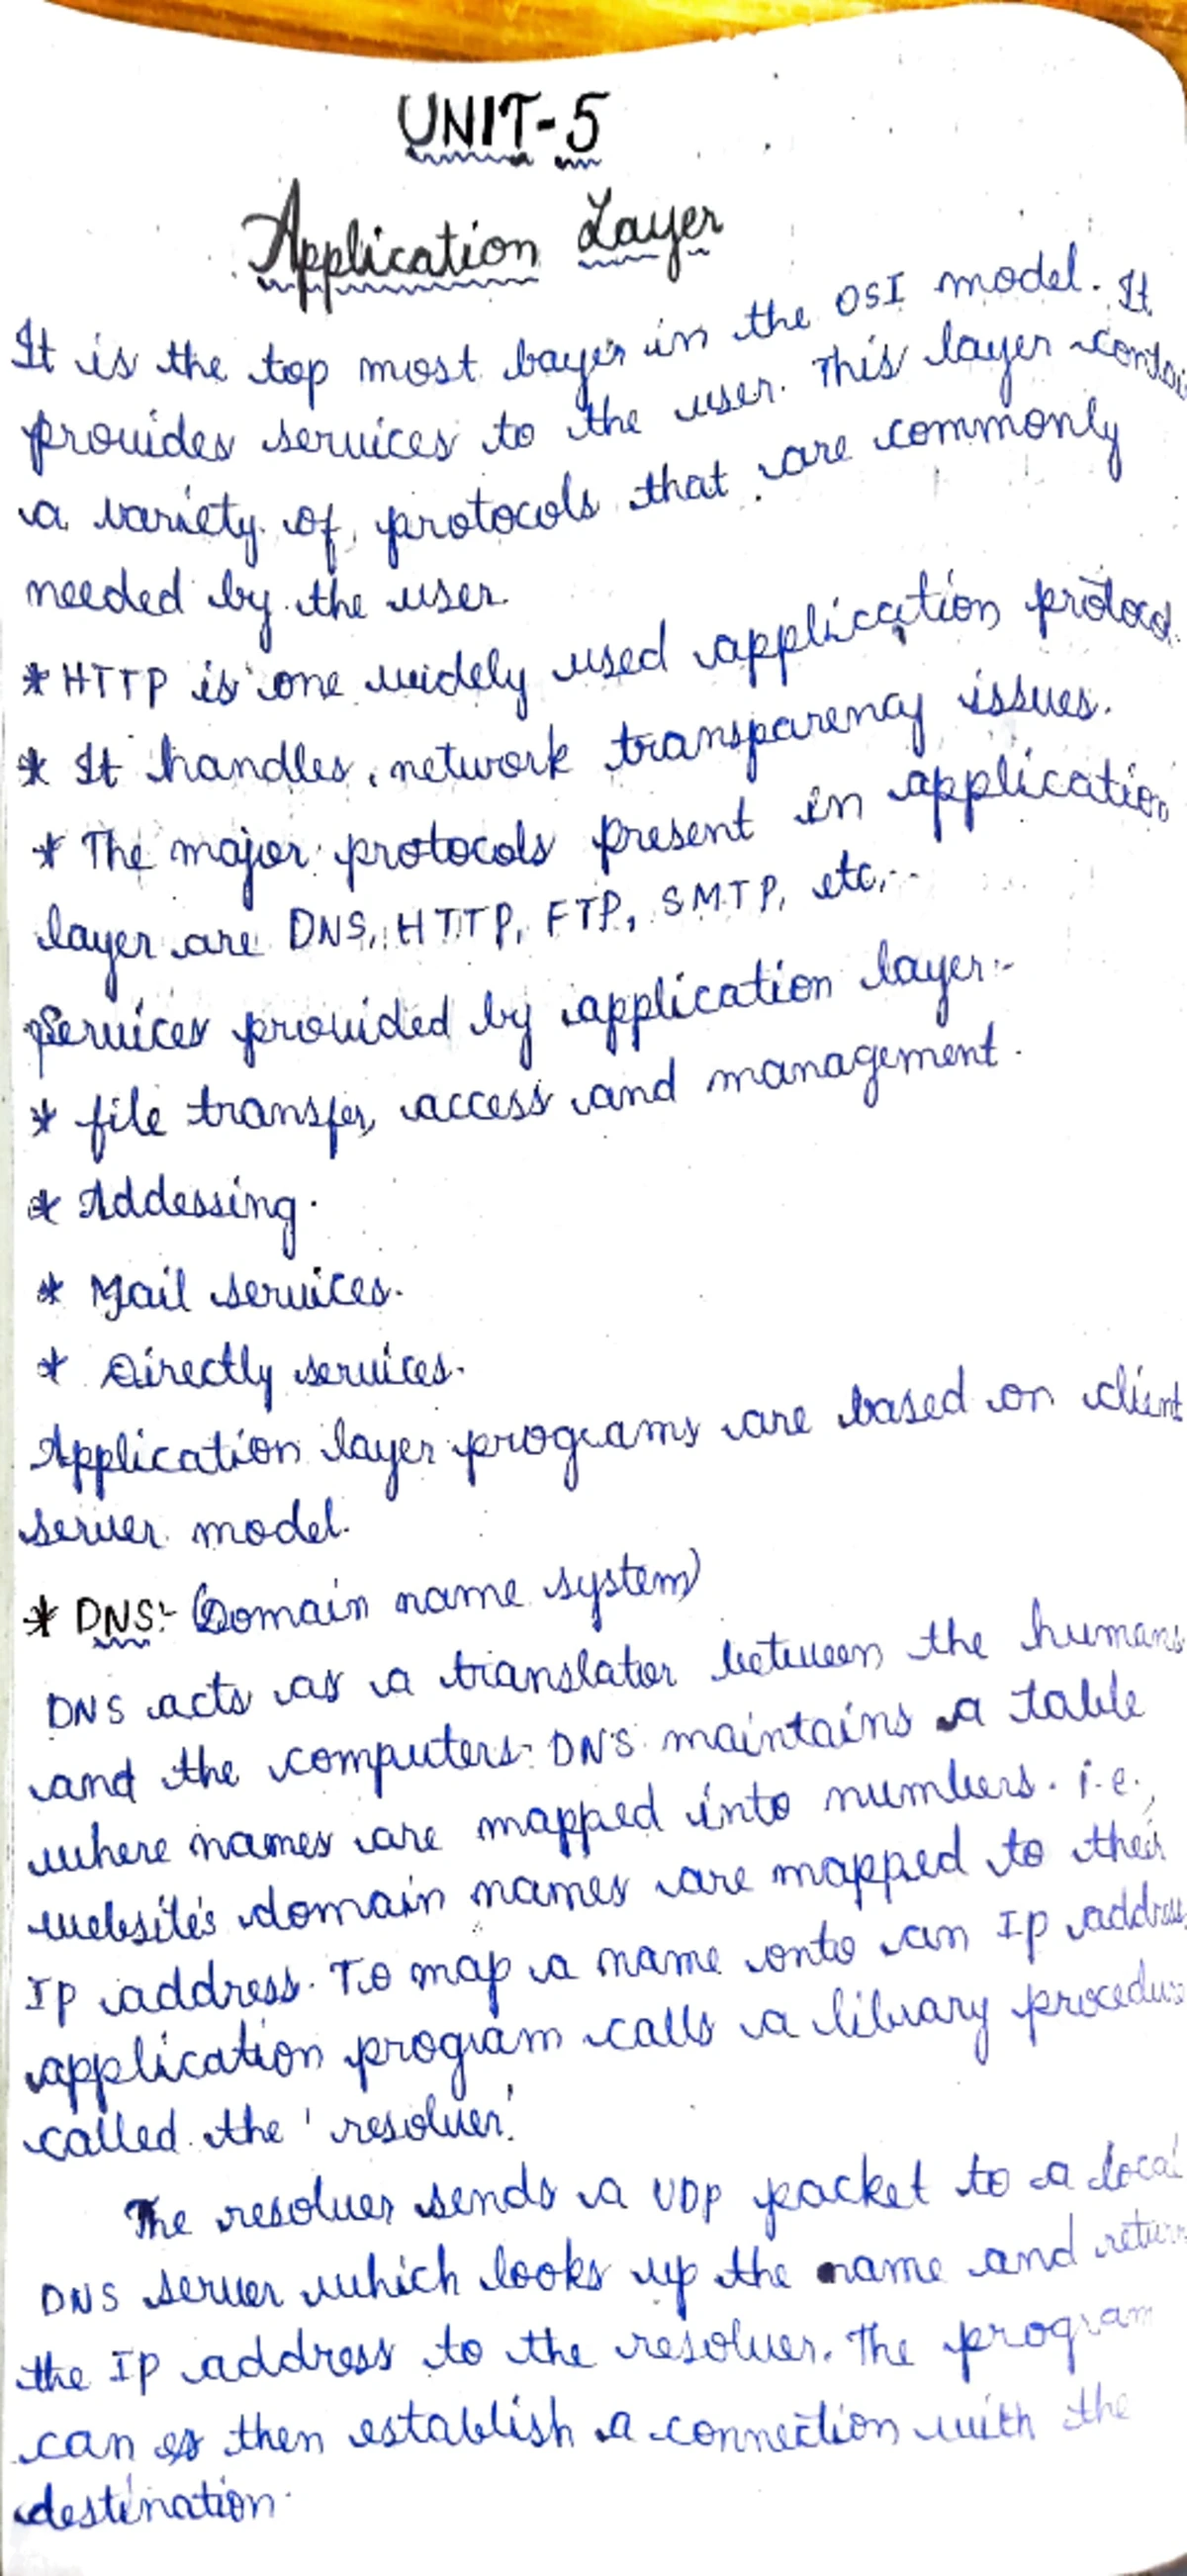 UNIT-5
Application Layer
It is the top most bayer in the OSI model. It
provides services to the user. This layer contai
a variety of protocols that are commonly
needed by the user
* HTTP is one widely used application protocol.
* It handles network transparency issues.
* The major protocols present in application
layer are DNS, HTTP, FTP, SMTP, etc,..
Services provided by application layer:-
* file transfer, access and management.
* Addessing.
* Mail services.
* Directly services.
Application layer programs are based on client
server model.
* DNS:- (Domain name system)
DNS acts as a translator between the humans
and the computers. DNS maintains a table
where names are mapped into numbers. i.e.,
website's domain names are mapped to their
Ip address. To map a name onto an Ip address
application program calls a library procedure
called the 'resolver'.
The resolver sends a UDP packet to a local
DNS server which looks up the name and return
the IP address to the resolver. The program
can then establish a connection with the
destination.